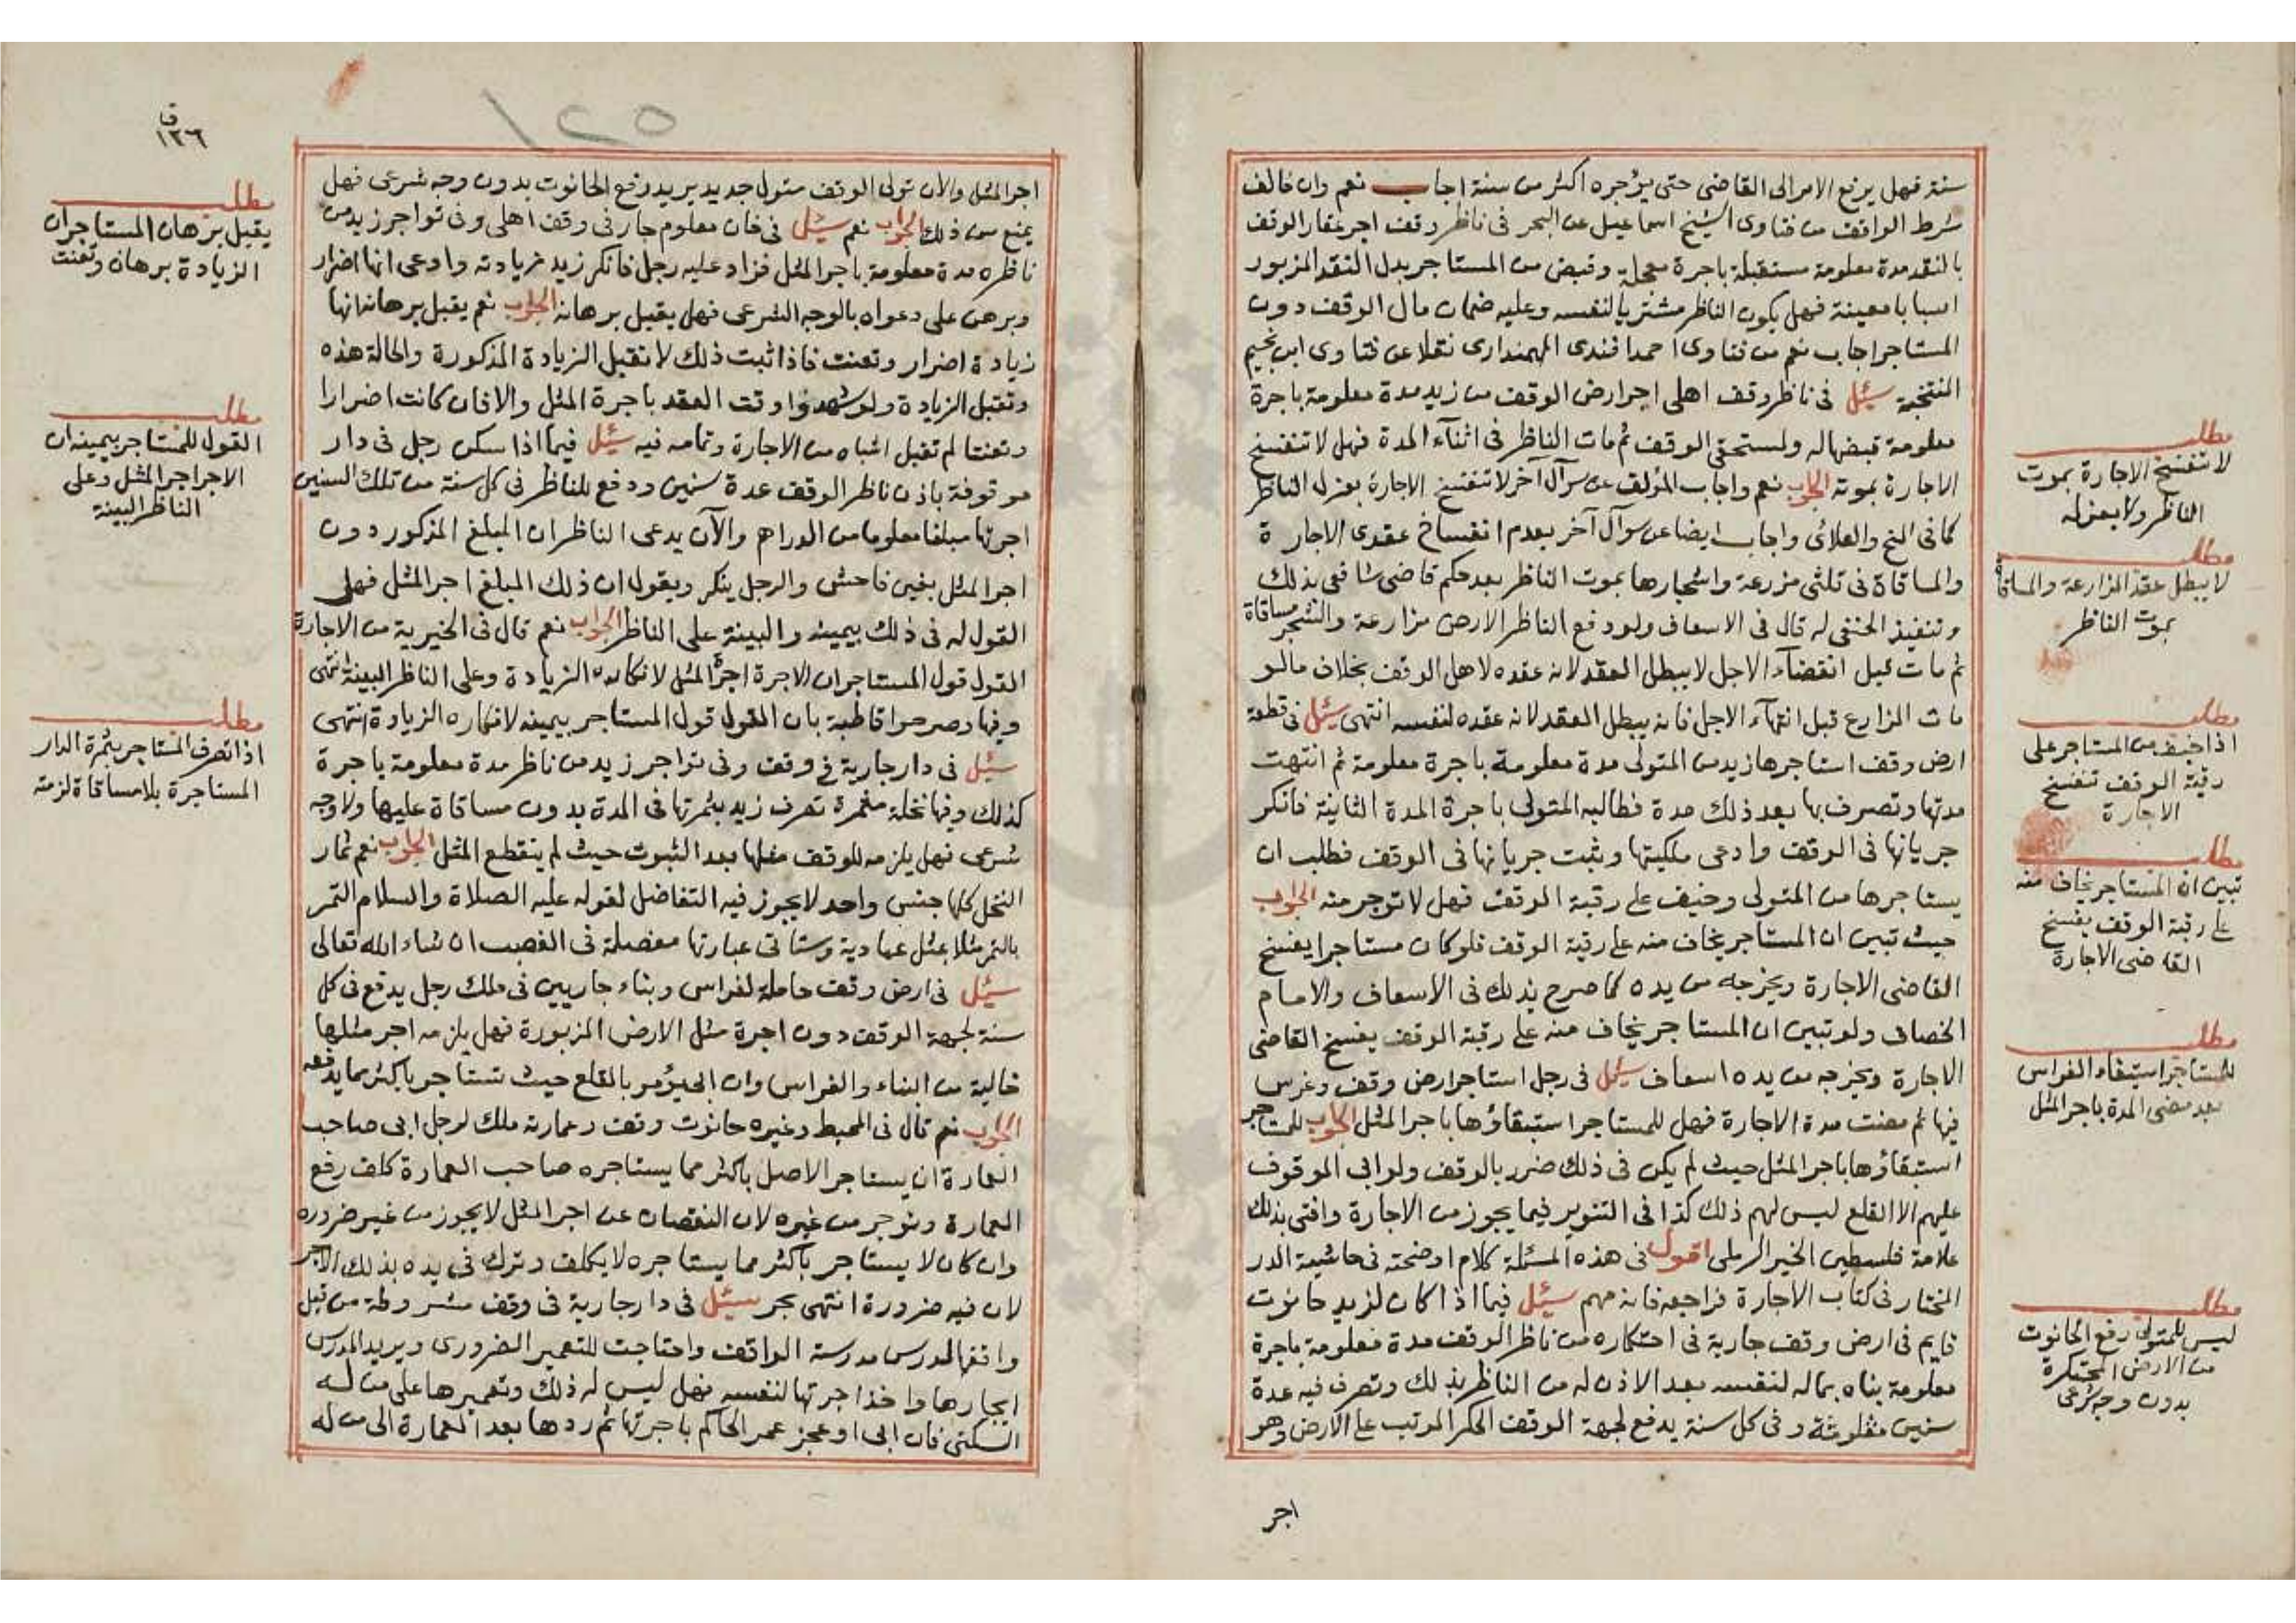 سنة فهل يرفع الامر الى القاضى حتى يؤجره اكثر من سنة اجاب نعم وان خالف
شرط الواقف من فتاوى الشيخ اسماعيل عن البحر فى ناظر وقف اجر عقار الوقف
بالنقد مدة معلومة مستقبلة باجرة معجلة وقبض من المستاجر بدل النقد المزبور
اسبابا معينة فهل يكون الناظر مشتريا لنفسه وعليه ضمان مال الوقف دون
المستاجر اجاب نعم من فتاوى احمد افندى المهمندارى نقلا عن فتاوى ابن نجيم
سئل فى ناظر وقف اهلى اجر ارض الوقف من زيد مدة معلومة باجرة
معلومة قبضها له ولمستحقى الوقف ثم مات الناظر فى اثناء المدة فهل لا تنفسخ
الاجارة بموته الجواب نعم واجاب المؤلف عن سوآل آخر لا تنفسخ الاجارة بعزل الناظر
كما فى المنح والعلائى واجاب ايضا عن سوآل آخر بعدم انفساخ عقدى الاجارة
والمساقاة فى ثلثى مزرعة واشجارها بموت الناظر بعد حكم قاضى شافعى بذلك
وتنفيذ الحنفى له قال فى الاسعاف ولو دفع الناظر الارض مزارعة والشجر مساقاة
ثم مات قبل انقضآء الاجل لا يبطل العقد لانه عقده لاهل الوقف بخلاف ما لو
مات المزارع قبل انتهآء الاجل فانه يبطل العقد لانه عقده لنفسه انتهى سئل فى قطعة
ارض وقف استاجرها زيد من المتولى مدة معلومة باجرة معلومة ثم انتهت
مدتها وتصرف بها بعد ذلك مدة فطالبه المتولى باجرة المدة الثانية فانكر
جريانها فى الوقف وادعى ملكيتها وثبت جريانها فى الوقف فطلب ان
يستاجرها من المتولى وخيف على رقبة الوقف فهل لا توجر منه الجواب
حيث تبين ان المستاجر يخاف منه على رقبة الوقف فلو كان مستاجرا يفسخ
القاضى الاجارة ويخرجه من يده كما صرح بذلك فى الاسعاف والامام
الخصاف ولو تبين ان المستاجر يخاف منه على رقبة الوقف يفسخ القاضى
الاجارة ويخرجه من يده اسعاف سئل فى رجل استاجر ارض وقف وغرس
فيها ثم مضت مدة الاجارة فهل للمستاجر استبقاؤها باجر المثل الجواب للمستاجر
استبقاؤها باجر المثل حيث لم يكن فى ذلك ضرر بالوقف ولو ابى الموقوف
عليهم الا القلع ليس لهم ذلك كذا فى التنوير فيما يجوز من الاجارة وافتى بذلك
علامة فلسطين الخير الرملى اقول فى هذه المسئلة كلام اوضحته فى حاشية الدر
المختار فى كتاب الاجارة فراجعه فانه مهم سئل فيما اذا كان لزيد حانوت
قايم فى ارض وقف جارية فى احتكاره من ناظر الوقف مدة معلومة باجرة
معلومة بناه بماله لنفسه بعد الاذن له من الناظر بذلك وتصرف فيه عدة
سنين وفى كل سنة يدفع لجهة الوقف الحكر المرتب على الارض وهو
اجر
مطلب
لا تنفسخ الاجارة بموت
الناظر ولا بعزله
مطلب
لا يبطل عقد المزارعة والمساقاة
بموت الناظر
مطلب
اذا خيف من المستاجر على
رقبة الوقف تنفسخ
الاجارة
مطلب
تبين ان المستاجر يخاف منه
على رقبة الوقف يفسخ
القاضى الاجارة
مطلب
للمستاجر استبقاء الغراس
بعد مضى المدة باجر المثل
مطلب
ليس للمتولى رفع الحانوت
من الارض المحتكرة
بدون وجه شرعى
١٢٥
ق
١٢٦
اجر المثل والان تولى الوقف متول جديد يريد رفع الحانوت بدون وجه شرعى فهل
يمنع من ذلك الجواب نعم سئل فى خان معلوم جار فى وقف اهلى وفى تواجر زيد من
ناظره مدة معلومة باجر المثل فزاد عليه رجل فانكر زيد زيادته وادعى انها اضرار
وبرهن على دعواه بالوجه الشرعى فهل يقبل برهانه الجواب نعم يقبل برهانه انها
زيادة اضرار وتعنت فاذا ثبت ذلك لا تقبل الزيادة المذكورة والحالة هذه
وتقبل الزيادة ولو شهدوا وقت العقد باجرة المثل والا فان كانت اضرارا
وتعنتا لم تقبل اشباه من الاجارة وتمامه فيه سئل فيما اذا سكن رجل فى دار
موقوفة باذن ناظر الوقف عدة سنين ودفع للناظر فى كل سنة من تلك السنين
اجرتها مبلغا معلوما من الدراهم والآن يدعى الناظر ان المبلغ المذكور دون
اجر المثل بغبن فاحش والرجل ينكر ويقول ان ذلك المبلغ اجر المثل فهل
القول له فى ذلك بيمينه والبينة على الناظر الجواب نعم قال فى الخيرية من الاجارة
القول قول المستاجر ان الاجرة اجرة المثل لانكاره الزيادة وعلى الناظر البينة
وفيها وصرحوا قاطبة بان القول قول المستاجر بيمينه لانكاره الزيادة انتهى
سئل فى دار جارية فى وقف وفى تواجر زيد من ناظر مدة معلومة باجرة
كذلك وفيها نخلة مثمرة تصرف زيد بثمرتها فى المدة بدون مساقاة عليها ولا وجه
شرعى فهل يلزمه للوقف مثلها بعد الثبوت حيث لم ينقطع المثل الجواب نعم ثمار
النخل كلها جنس واحد لا يجوز فيه التفاضل لقوله عليه الصلاة والسلام التمر
بالتمر مثلا بمثل عمادية وستاتى عبارتها مفصلة فى الغصب ان شاء الله تعالى
سئل فى ارض وقف حاملة لغراس وبناء جاريين فى ملك رجل يدفع فى كل
سنة لجهة الوقف دون اجرة مثل الارض المزبورة فهل يلزمه اجر مثلها
خالية من البناء والغراس وان ابى يؤمر بالقلع حيث تستاجر باكثر مما يدفعه
الجواب نعم قال فى المحيط وغيره حانوت وقف وعمارته ملك لرجل ابى صاحب
العمارة ان يستاجر الاصل باكثر مما يستاجره صاحب العمارة كلف رفع
العمارة وتوجر من غيره لان النقصان عن اجر المثل لا يجوز من غير ضروره
وان كان لا يستاجر باكثر مما يستاجره لا يكلف وترك فى يده بذلك الاجر
لان فيه ضرورة انتهى بحر سئل فى دار جارية فى وقف مشروطة من قبل
واقفها لمدرس مدرسة الواقف واحتاجت للتعمير الضرورى ويريد المدرس
ايجارها واخذ اجرتها لنفسه فهل ليس له ذلك وتعميرها على من له
السكنى فان ابى او عجز عمر الحاكم باجرتها ثم ردها بعد العمارة الى من له
مطلب
يقبل برهان المستاجر ان
الزيادة برهان وتعنت
مطلب
القول للمستاجر بيمينه ان
الاجر اجر المثل وعلى
الناظر البينة
مطلب
اذا تصرف المستاجر بثمرة الدار
المستاجرة بلا مساقاة لزمته